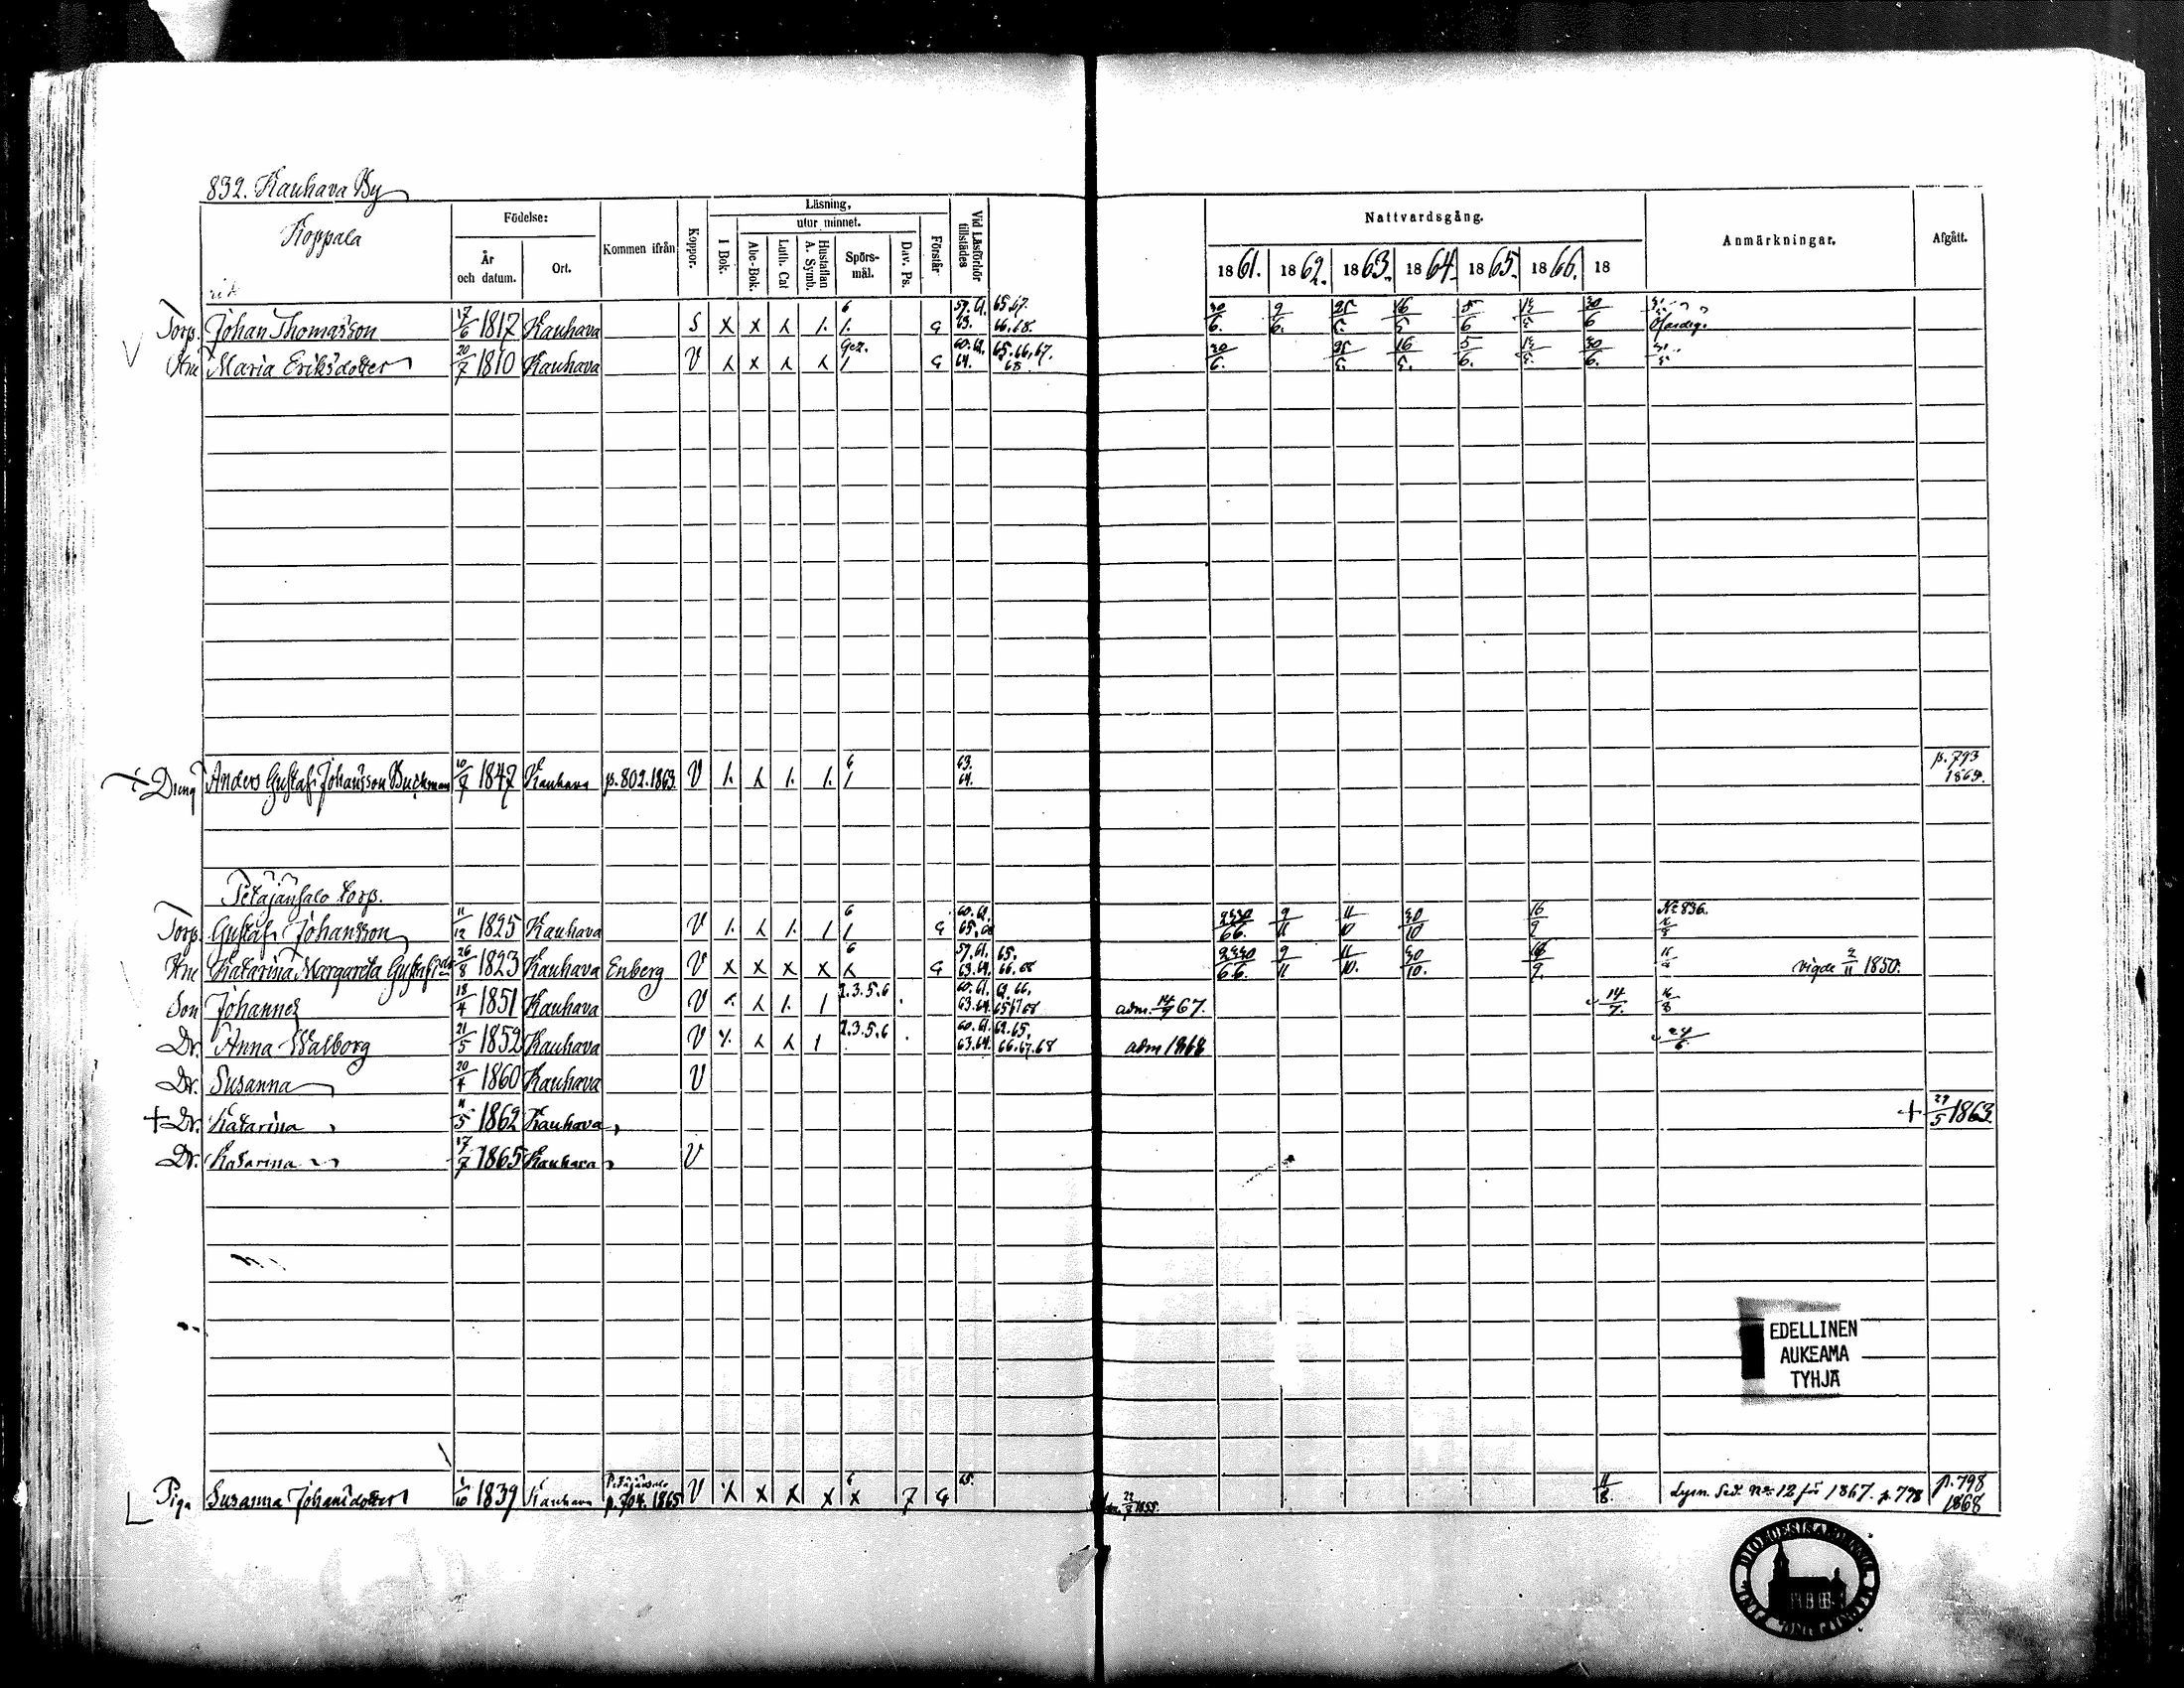 832. Kauhava By
Koppala
Födelse:
År och datum.
Ort.
Kommen ifrån
Koppor.
Läsning,
I Bok.
utur minnet.
Abc-Bok.
Luth. Cat
Hustaflan A. Symb.
Spörsmål.
Dav. Ps.
Förstår
Vid Läsförhör tillstädes
Nattvardsgång.
1861. 1862. 1863. 1864. 1865. 1866. 18
Anmärkningar.
Afgått.
Torp. Johan Thomasson 17/6 1817 Kauhava S X X 6 G 57. 61. 63. 65. 67. 66. 68. 30/6. 9/6. 25/5. 16/5 5/6 13/5 30/6
Hu Maria Eriksdotter 20/7 1810 Kauhava V X G 60. 62. 64. 65. 66. 67. 68 30/6. 25/5. 16/5. 5/6. 13/5. 30/6.
Dreng Anders Gustaf Johansson Buckman 10/7 1847 Kauhava p. 802. 1863. V 6 63. 64. p. 793 1864.
Petäjänsalo torp.
Torp. Gustaf Johansson 11/12 1825 Kauhava V 6 G 60. 61. 65. 68 9/11 11/10 30/10 16/9 No 836.
Hu Katarina Margareta Gustafsdr 26/8 1823 Kauhava Enberg V X X X X 6 G 57. 61. 63. 64. 65. 66. 68 9/11 11/10. 30/10. 16/9. vigde 2/11 1850.
Son Johannes 18/4 1851 Kauhava V 2.3.5.6 60. 61. 63. 64. 62. 66. 65 67 68 adm. 14/7 67. 14/7. 16/8
Dr. Anna Walborg 21/5 1852 Kauhava V 2.3.5.6 60. 61. 63. 64. 62. 65. 66. 67. 68 adm 1868 24/6
Dr. Susanna 20/4 1860 Kauhava V
+ Dr. Katarina 11/5 1862 Kauhava + 29/5 1863.
Dr. Katarina 17/7 1865 Kauhava V
EDELLINEN
AUKEAMA
TYHJÄ
Piga Susanna Johansdotter 1/10 1839 Kauhava Petäjänsalo p. 704. 1865 V X X X X X 6 7 G 65. 11/8. Lysn. Sed. No 12 för 1867. p. 798 p. 798 1868